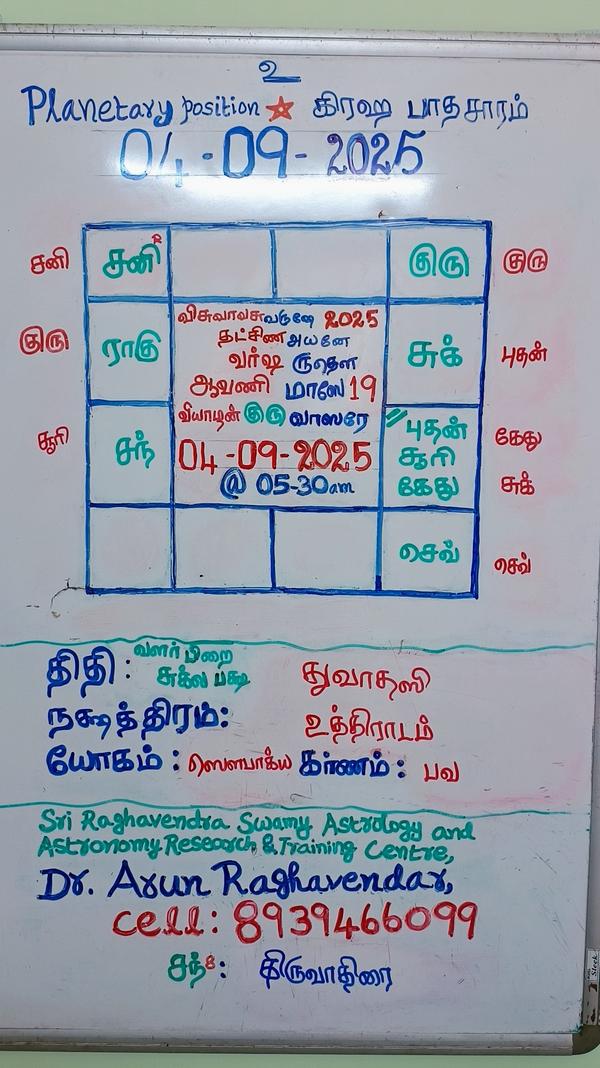 உ
Planetary position ☆ கிரஹ பாதசாரம்
04-09-2025
சனி சனி R குரு குரு
விசுவாவசுவருஷே 2025
தட்சிண அயனே
குரு ராகு வர்ஷ ருதௌ சுக் புதன்
ஆவணி மாஸே 19
வியாழன் குரு வாஸரே
சூரி சந் புதன் கேது
04-09-2025 சூரி
@ 05-30am கேது சுக்
செவ் செவ்
திதி: வளர் பிறை
சுக்ல பக்ஷ துவாதஸி
நக்ஷத்திரம்: உத்திராடம்
யோகம்: ஸௌபாக்ய கர்ணம்: பவ
Sri Raghavendra Swamy Astrology and
Astronomy Research & Training Centre,
Dr. Arun Raghavendar,
cell: 8939466099
சந் 8: திருவாதிரை